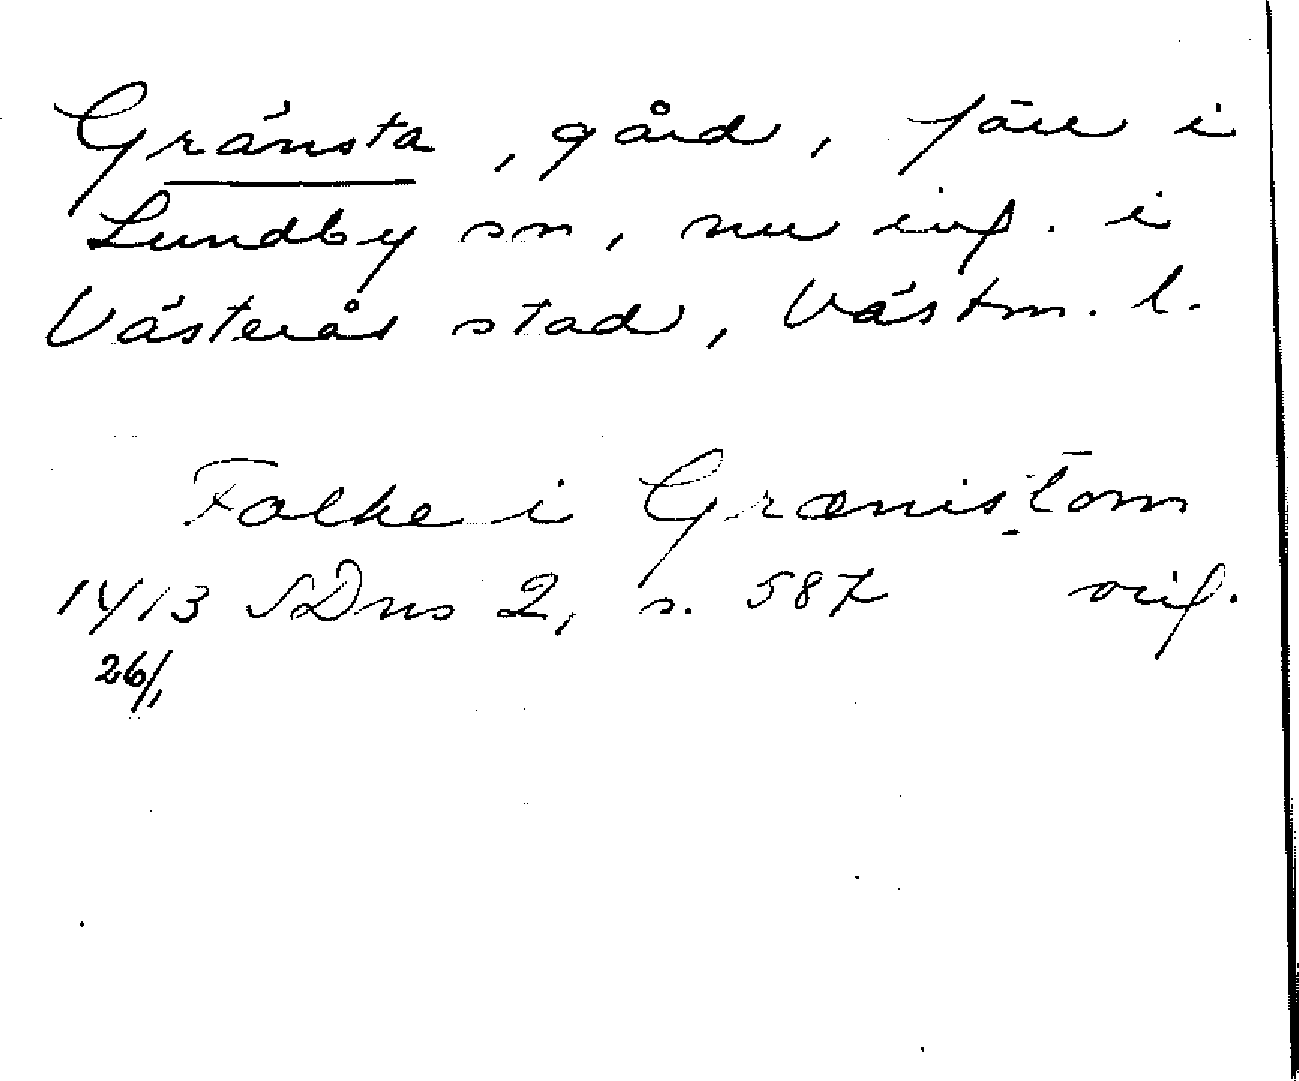 Gränsta, gård, förr i
Lundby sn, nu inf. i
Västerås stad, Västm. l.
Folke i Grænistom
1413 SDns 2, s. 587 orig.
26/1